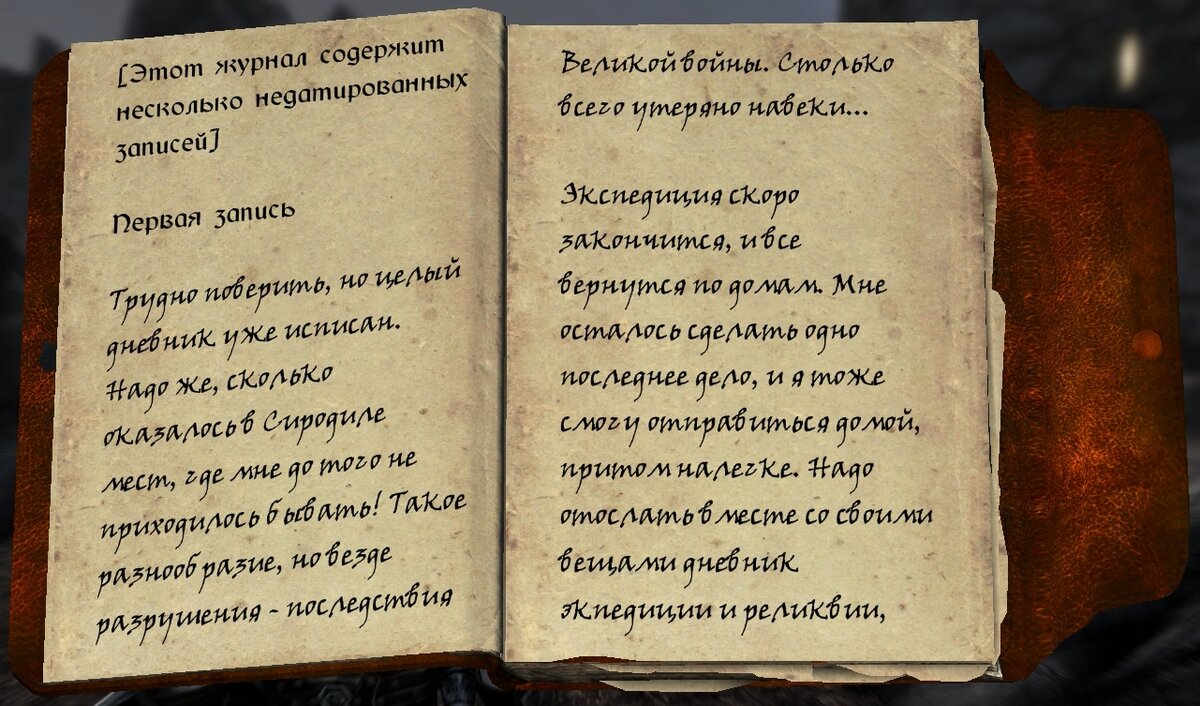 [Этот журнал содержит
несколько недатированных
записей]
Первая запись
Трудно поверить, но целый
дневник уже исписан.
Надо же, сколько
оказалось в Сиродиле
мест, где мне до того не
приходилось бывать! Такое
разнообразие, но везде
разрушения - последствия
Великой войны. Столько
всего утеряно навеки...
Экспедиция скоро
закончится, и все
вернутся по домам. Мне
осталось сделать одно
последнее дело, и я тоже
смогу отправиться домой,
притом налегке. Надо
отослать вместе со своими
вещами дневник
экпедиции и реликвии,